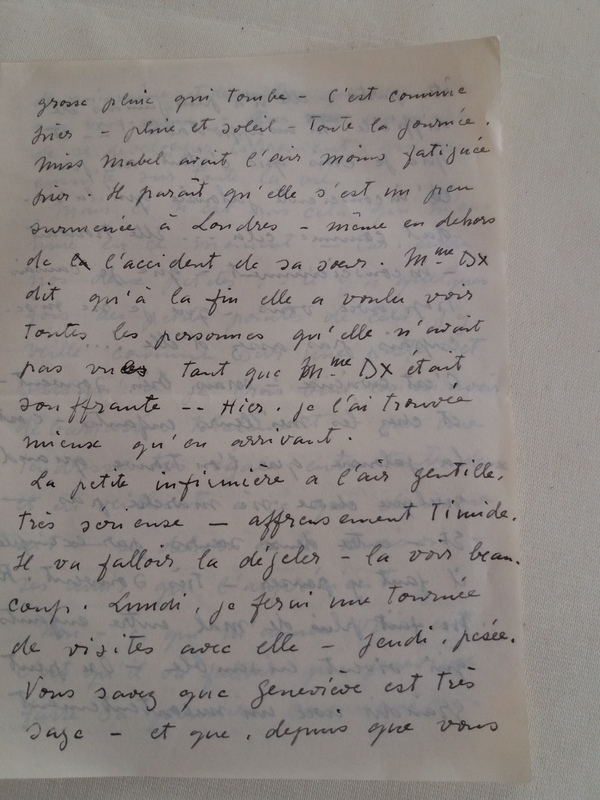 grosse pluie qui tombe - C'est comme
hier - pluie et soleil - toute la journée.
Miss Mabel avait l'air moins fatiguée
hier. Il paraît qu'elle s'est un peu
surmenée à Londres - même en dehors
de l'accident de sa sœur. Mme Dx
dit qu'à la fin elle a voulu voir
toutes les personnes qu'elle n'avait
pas vu tant que Mme Dx était
souffrante -- Hier, je l'ai trouvée
mieux qu'en arrivant.
La petite infirmière a l'air gentille,
très sérieuse - affreusement timide.
Il va falloir la dégeler - la voir beau-
coup. Lundi, je ferai une tournée
de visites avec elle - Jeudi, pesée.
Vous savez que Geneviève est très
sage - et que, depuis que vous